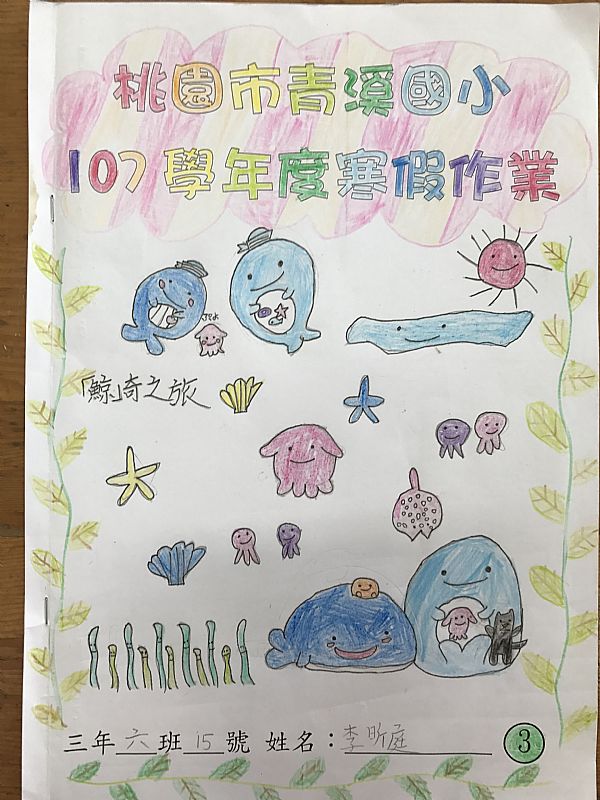 桃園市青溪國小
107學年度寒假作業
「鯨崎之旅
三年六班15號 姓名：李昕庭
3